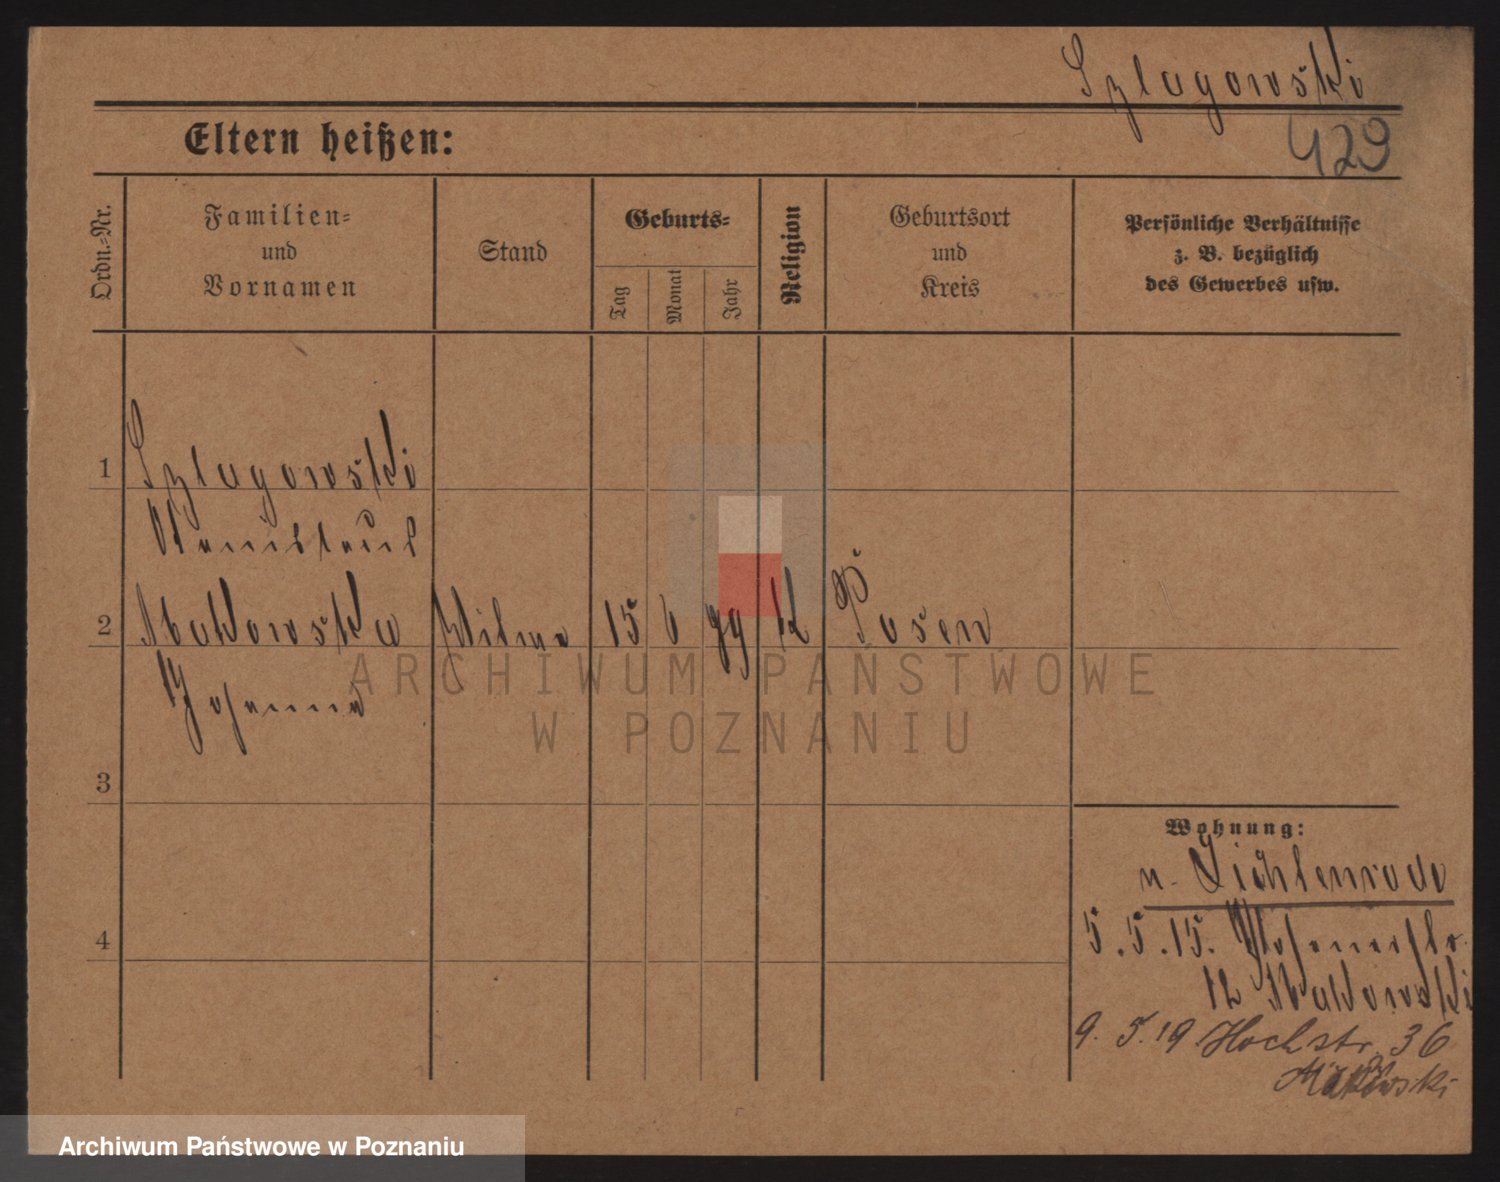 Szlagowski
429
Eltern heißen:
Ordn.-Nr.
Familien-
und
Vornamen
Stand
Geburts-
Tag
Monat
Jahr
Religion
Geburtsort
und
Kreis
Persönliche Verhältnisse
z. B. bezüglich
des Gewerbes usw.
1 Szlagowski
Stanislaus
2 Makowska 15 6 99 K Posen
Johanna
3
4
Wohnung:
n. Lichtenrade
5.5.15. Posenerstr.
12 Makowski
9.5.19 Hochstr. 36
Makowski
ARCHIWUM PAŃSTWOWE
W POZNANIU
Archiwum Państwowe w Poznaniu